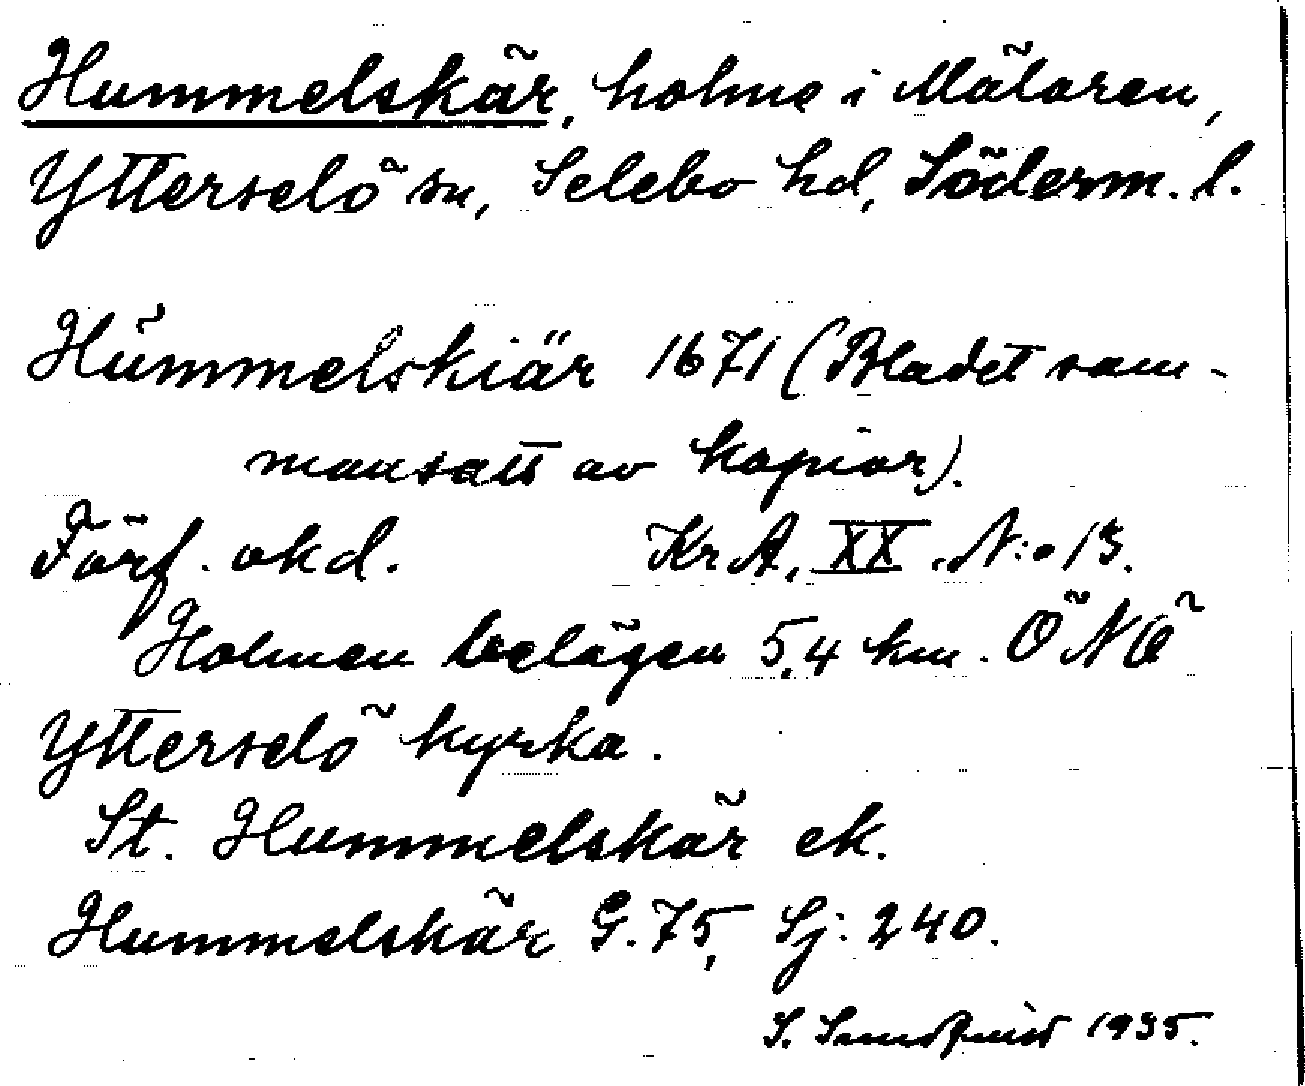 Hummelskär, holme i Mälaren,
Ytterselö sn, Selebo hd, Söderm. l.
Hŭmmelskiär 1671 (Bladet sam-
mansatt av kopior).
Förf. okd. Kr A, XX. N:o 13.
Holmen belägen 5,4 km. ÖNÖ
Ytterselö kyrka.
St. Hummelskär ek.
Hummelskär G. 75, Sj: 240.
S. Sundquist 1935.